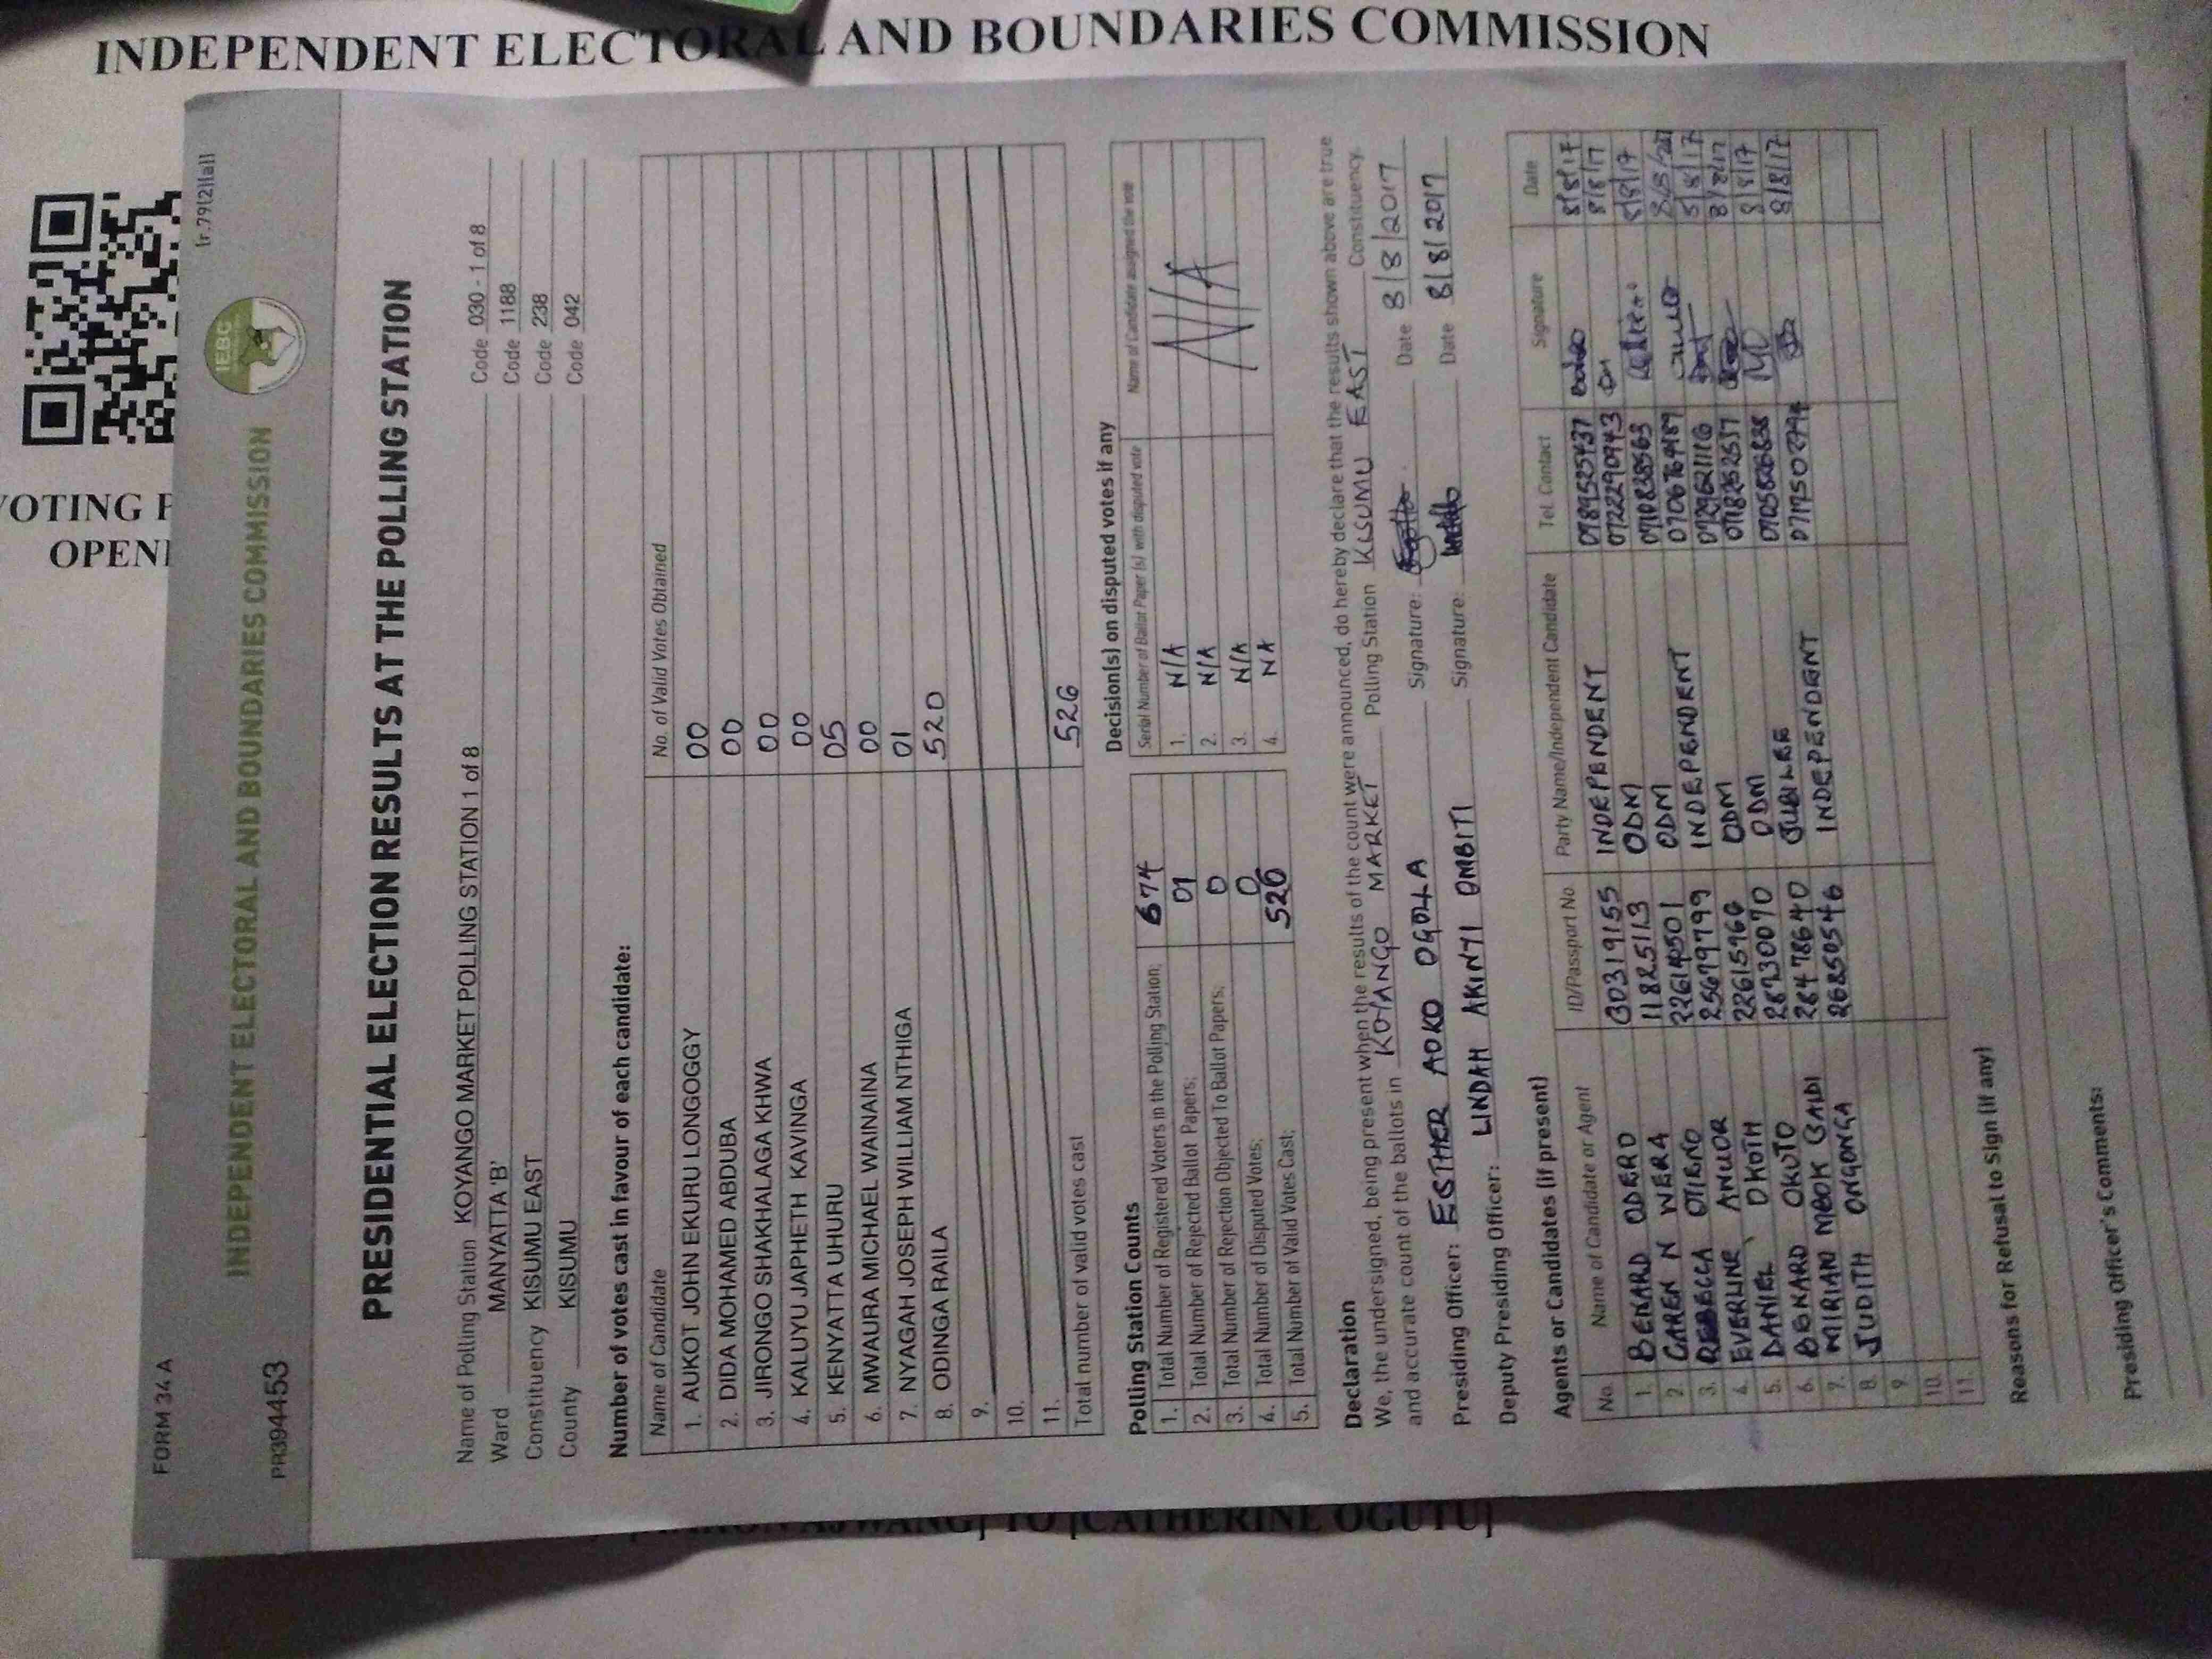 INDEPENDENT ELECTORAL AND BOUNDARIES COMMISSION
VOTING P
OPENI
FORM 34 A
(r.79(2)(a))
INDEPENDENT ELECTORAL AND BOUNDARIES COMMISSION
IEBC
PR394453
PRESIDENTIAL ELECTION RESULTS AT THE POLLING STATION
Name of Polling Station KOYANGO MARKET POLLING STATION 1 of 8 Code 030 - 1 of 8
Ward MANYATTA 'B' Code 1188
Constituency KISUMU EAST Code 238
County KISUMU Code 042
Number of votes cast in favour of each candidate:
Name of Candidate No. of Valid Votes Obtained
1. AUKOT JOHN EKURU LONGOGGY 00
2. DIDA MOHAMED ABDUBA 00
3. JIRONGO SHAKHALAGA KHWA 00
4. KALUYU JAPHETH KAVINGA 00
5. KENYATTA UHURU 05
6. MWAURA MICHAEL WAINAINA 00
7. NYAGAH JOSEPH WILLIAM NTHIGA 01
8. ODINGA RAILA 520
9.
10.
11.
Total number of valid votes cast 526
Polling Station Counts
1. Total Number of Registered Voters in the Polling Station; 674
2. Total Number of Rejected Ballot Papers; 01
3. Total Number of Rejection Objected To Ballot Papers; 0
4. Total Number of Disputed Votes; 0
5. Total Number of Valid Votes Cast; 526
Decision(s) on disputed votes if any
Serial Number of Ballot Paper (s) with disputed vote Name of Candidate assigned the vote
1. N/A N/A
2. N/A
3. N/A
4. NA
Declaration
We, the undersigned, being present when the results of the count were announced, do hereby declare that the results shown above are true
and accurate count of the ballots in KOYANGO MARKET Polling Station KISUMU EAST Constituency.
Presiding Officer: ESTHER AOKO OGOLLA Signature: Date 8/8/2017
Deputy Presiding Officer: LINDAH AKINYI OMBITI Signature: Date 8/8/2017
Agents or Candidates (if present)
No. Name of Candidate or Agent ID/Passport No Party Name/Independent Candidate Tel. Contact Signature Date
1. BENARD ODERO 30319155 INDEPENDENT 0789525437 8/8/17
2. CAREN N WERA 11825113 ODM 0722290943 8/8/17
3. REBECCA OTIENO ODM 0710838563 8/8/17
4. EVERLINE ANUOR 25679799 INDEPENDENT 0706764989
5. DANIEL OKOTH 22615966 ODM 0729621116 8/8/17
6. BENARD OKUTO 28230070 ODM 0718252657 8/8/17
7. MIRIAN MBOK 28478640 JUBILEE 0705826838 8/8/17
8. JUDITH ONGONGA 26850546 INDEPENDENT 8/8/17
9.
10.
11.
Reasons for Refusal to Sign (if any)
Presiding Officer's Comments:
TO [CATHERINE OGUTU]